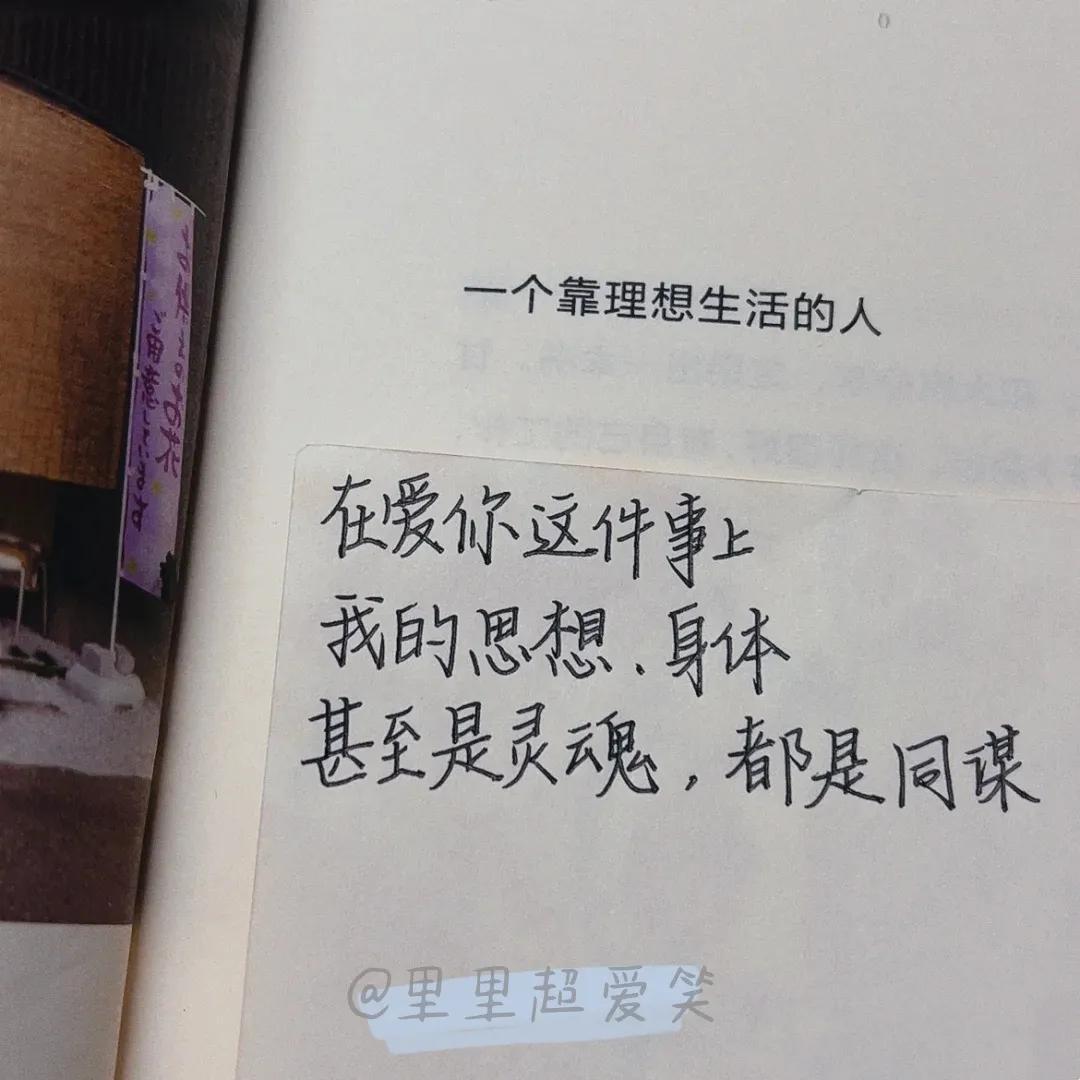 一个靠理想生活的人
在爱你这件事上
我的思想、身体
甚至是灵魂，都是同谋
@里里超爱笑